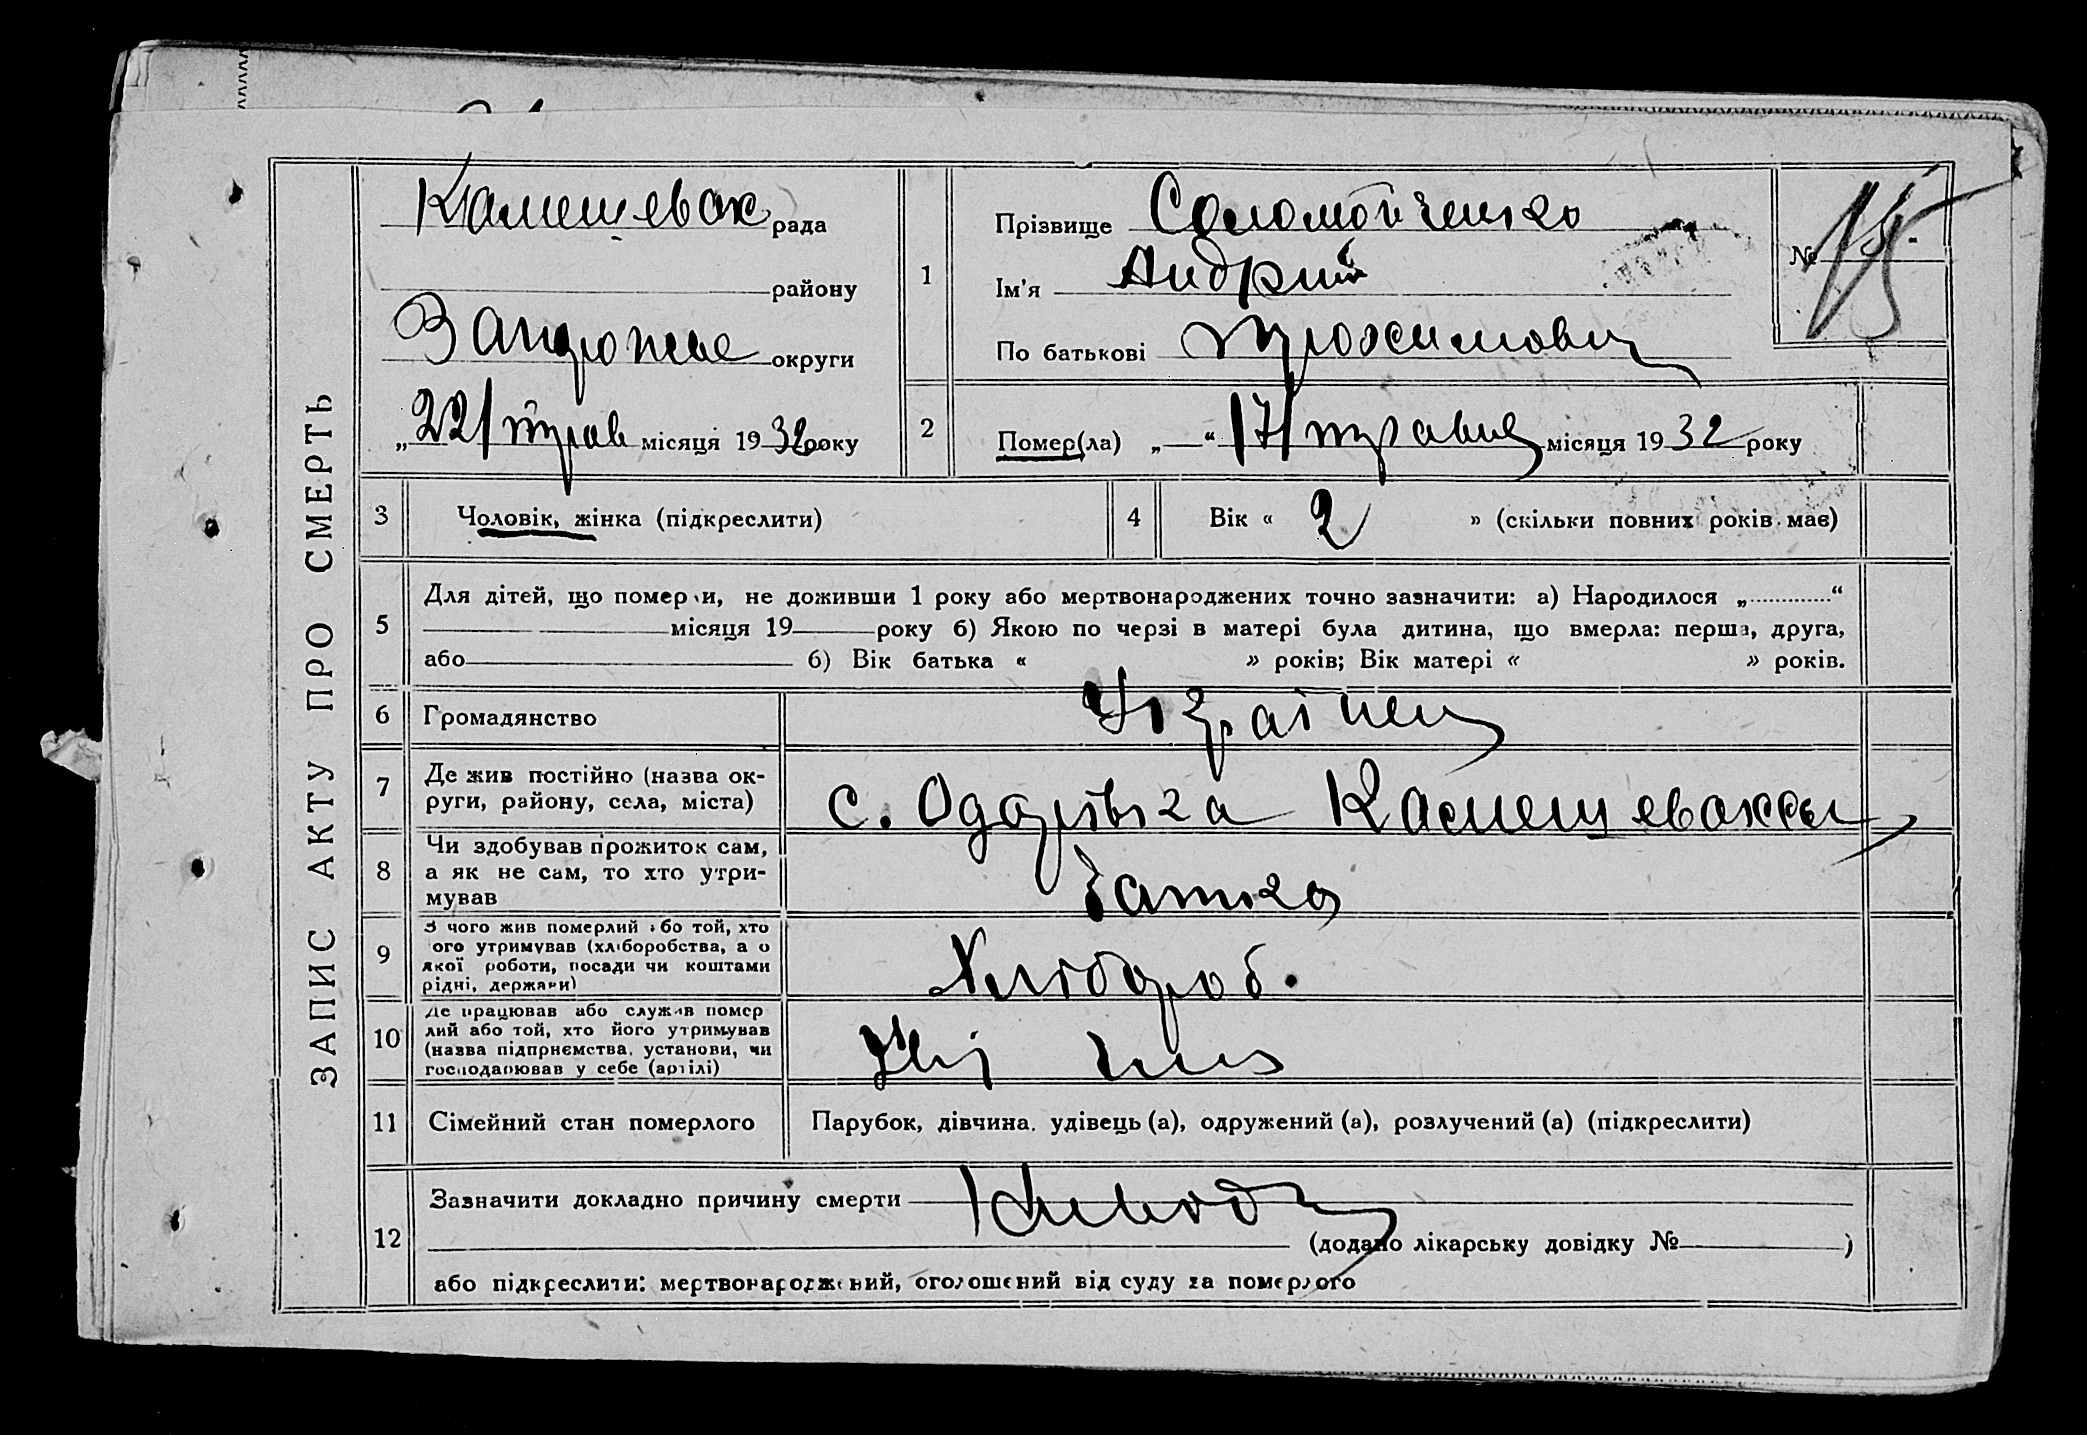 ЗАПИС АКТУ ПРО СМЕРТЬ
Камешеваж рада
району
Запорожже округи
„22/ трав місяця 1932 року
1
Прізвище Соломойченко
Ім'я Андрий
По батькові Трохимович
№ 15
2
Помер(ла) „ “ 17/ травня місяця 1932 року
3 Чоловік, жінка (підкреслити)
4 Вік « 2 » (скільки повних років має)
5
Для дітей, що померли, не доживши 1 року або мертвонароджених точно зазначити: а) Народилося „ “
місяця 19 року б) Якою по черзі в матері була дитина, що вмерла: перша, друга,
або б) Вік батька « » років; Вік матері « » років.
6 Громадянство
Українец
7
Де жив постійно (назва ок-
руги, району, села, міста)
с.
8
Чи здобував прожиток сам,
а як не сам, то хто утри-
мував
Батько
9
З чого жив померлий або той, хто
ого утримував (хліборобства, а о
якої роботи, посади чи коштами
рідні, держави)
Хлібороб.
10
Де працював або служив помер
лий або той, хто його утримував
(назва підприємства, установи, чи
господарював у себе (артілі)
11 Сімейний стан померлого
Парубок, дівчина, удівець (а), одружений (а), розлучений (а) (підкреслити)
12
Зазначити докладно причину смерти
(додано лікарську довідку № )
або підкреслити: мертвонароджений, оголошений від суду за померлого